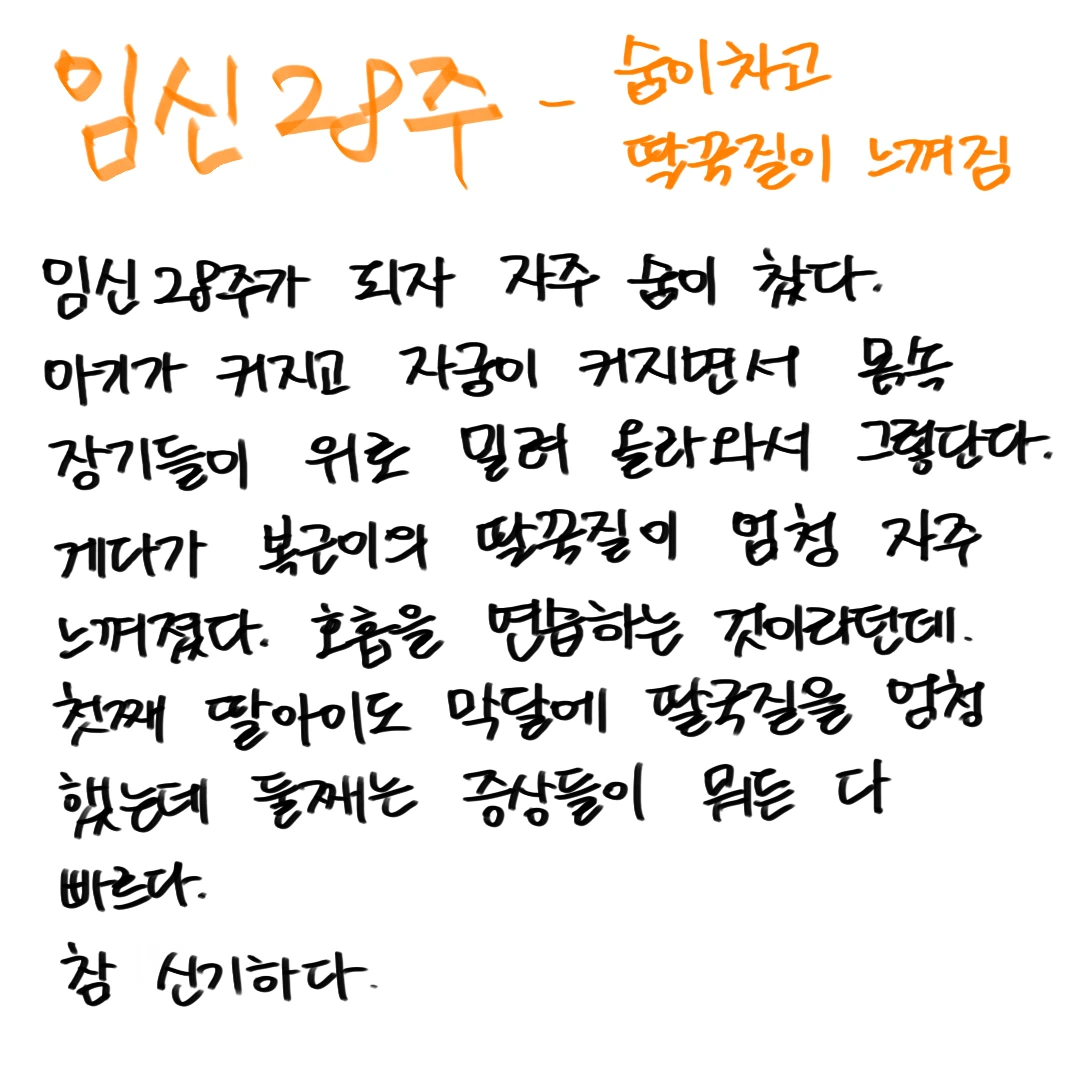 임신28주 - 숨이차고
딸꾹질이 느껴짐
임신28주가 되자 자주 숨이 찼다.
아기가 커지고 자궁이 커지면서 몸속
장기들이 위로 밀려 올라와서 그렇단다.
게다가 복근이의 딸꾹질이 엄청 자주
느껴졌다. 호흡을 연습하는 것이라던데.
첫째 딸아이도 막달에 딸국질을 엄청
했는데 둘째는 증상들이 뭐든 다
빠르다.
참 신기하다.